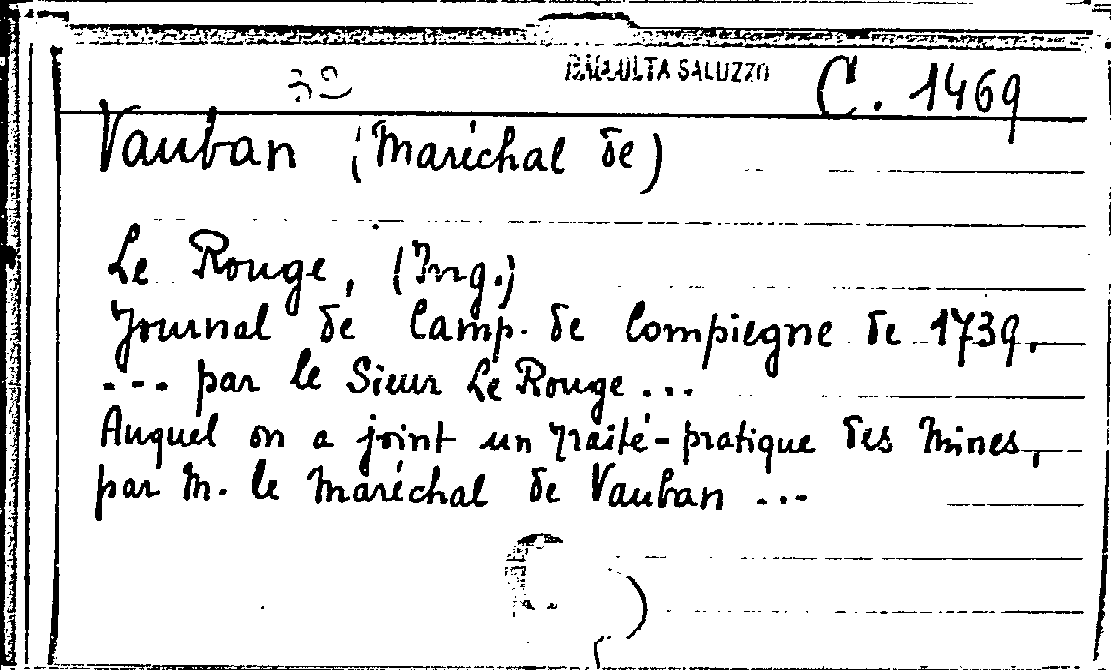 RACCOLTA SALUZZO C. 1469
Vauban (Maréchal de)
Le Rouge, (Ing.)
Journal de Camp. de Compiegne de 1739,
--- par le Sieur Le Rouge ...
Auquel on a joint un traité-pratique des mines,
par M. le Maréchal de Vauban ...